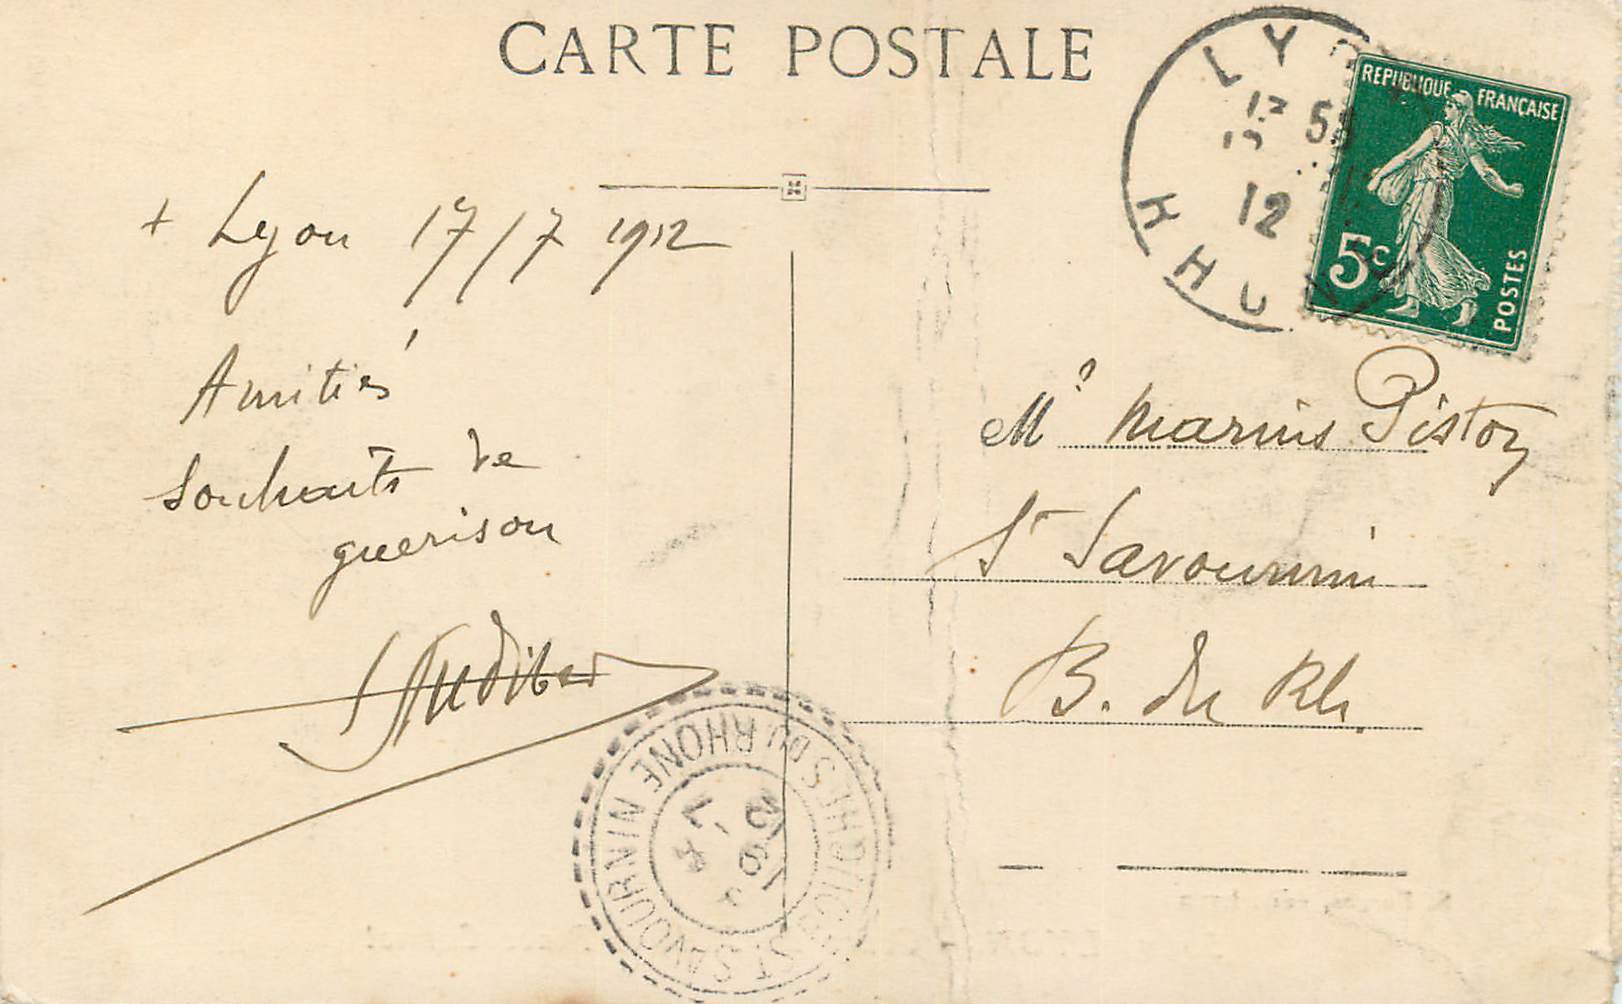 CARTE POSTALE
LYON
RHONE
12 55
12
REPUBLIQUE FRANÇAISE
5c
POSTES
+ Lyon 17/7 1912
Amitiés
Souhaits de
guerison
Audibert
Mr Marius Pistoy
St Savournin
B. du Rh.
ST SAVOURNIN
BOUCHES DU RHONE